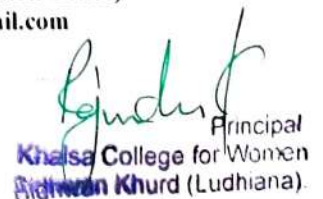 il.com
Principal
Khalsa College for Women
Sidhwan Khurd (Ludhiana).